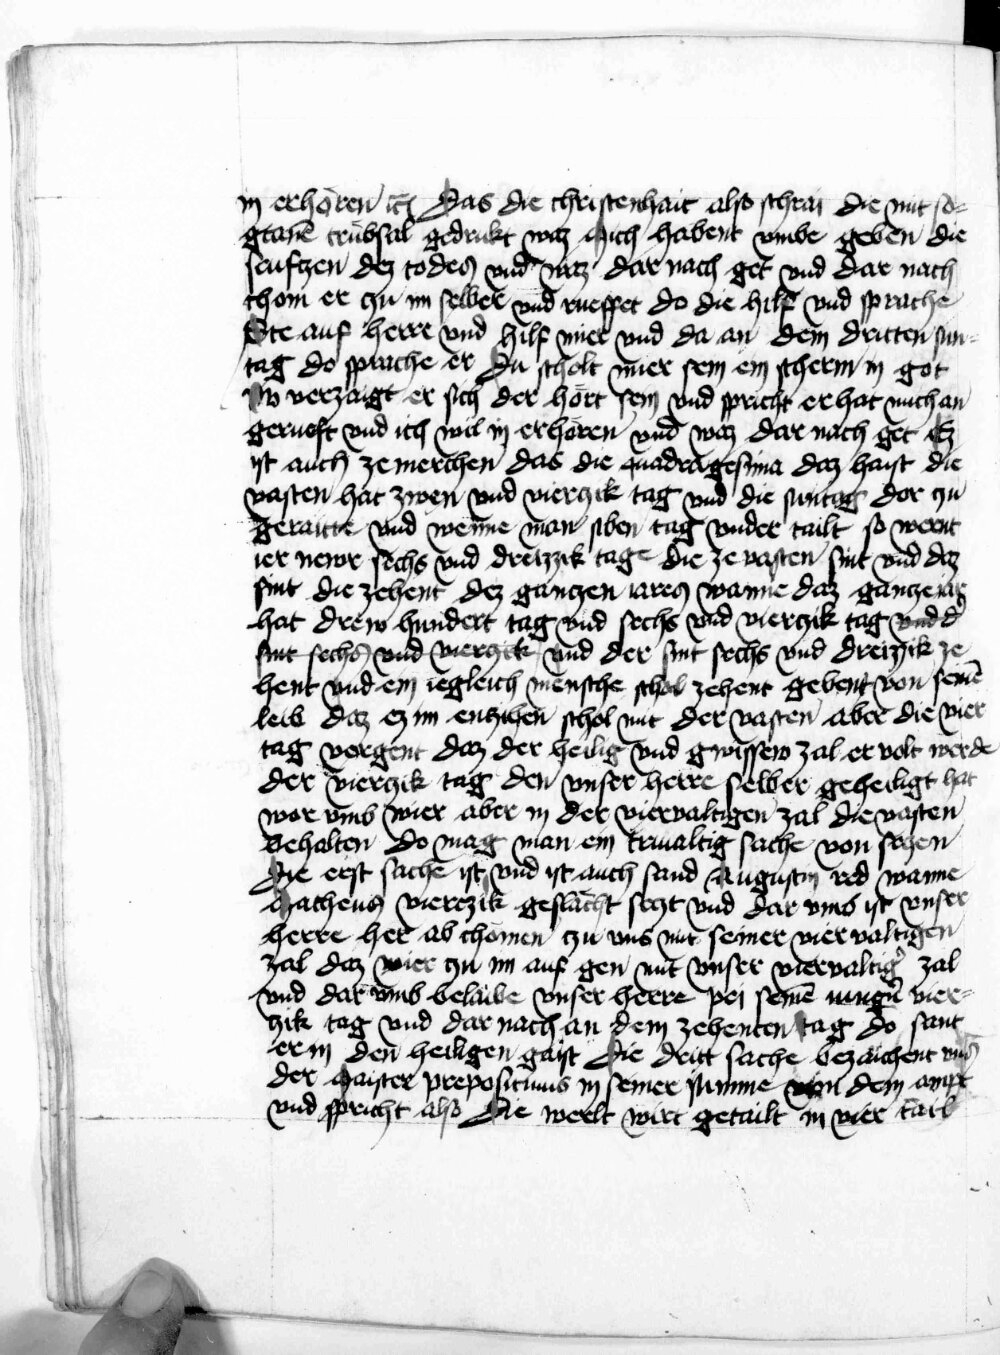 in erhören ic̄ Das die christenhait also schrai die mit so=
gtanē trübsal gedrukt waz Mich habent vmbe geben die
seuftzen dez todes vnd waz dar nach get vnd dar nach
chom er zu im selber vnd rueffet do die hilf vnd sprache
Ste auf herre vnd hilf mier vnd da an dem dritten sun=
tag do sprache er Du scholt mier sein ein scherm in got
Nw verzaigt er sich der hört sein vnd spricht er hat mich an
gerueft vnd ich wil in erhören vnd waz dar nach get Ez
ist auch ze merchen das die quadragesima daz haist die
vasten hat zwen vnd vierczik tag vnd die suntag dor zu
geraitte vnd wenne man siben tag vnder tailt so wernt
ier newr sechs vnd dreizzik tage die ze vasten sint vnd daz
sint die zehent dez ganczen iares wanne daz gancze iar
hat drew hundert tag vnd sechs vnd vierczik tag vnd d'
sint sechs vnd vierczik vnd der sint sechs vnd dreizzik ze
hent vnd ein iegleich mensche schol zehent gebent von seinē
leib daz ez im enzihen schol mit der vasten aber die vier
tag vergent daz der heilig vnd gwissew zal er volt werde
der vierczik tag den vnser herre selber geheiligt hat
war vmb wier aber in der viervaltigen zal die vasten
behalten do mag man ein trivaltig sache von seczen
Die erst sache ist vnd ist auch sand Augustin red wanne
Matheus vierczik geslächt seczt vnd dar vmb ist vnser
herre her ab chomen zu vns mit seiner viervaltigen
zal daz wier zu im auf gen mit vnser viervaltig' zal
vnd dar vmb belaibe vnser herre pei seinē iungn̄ vier=
zik tag vnd dar nach an dem zehenten tag do sant
er in den heiligen gaist Die dritt sache bezaichent vns
der Maister prepositiuus in seiner summe von dem ampt
vnd spricht also Die werlt wirt getailt in vier tail